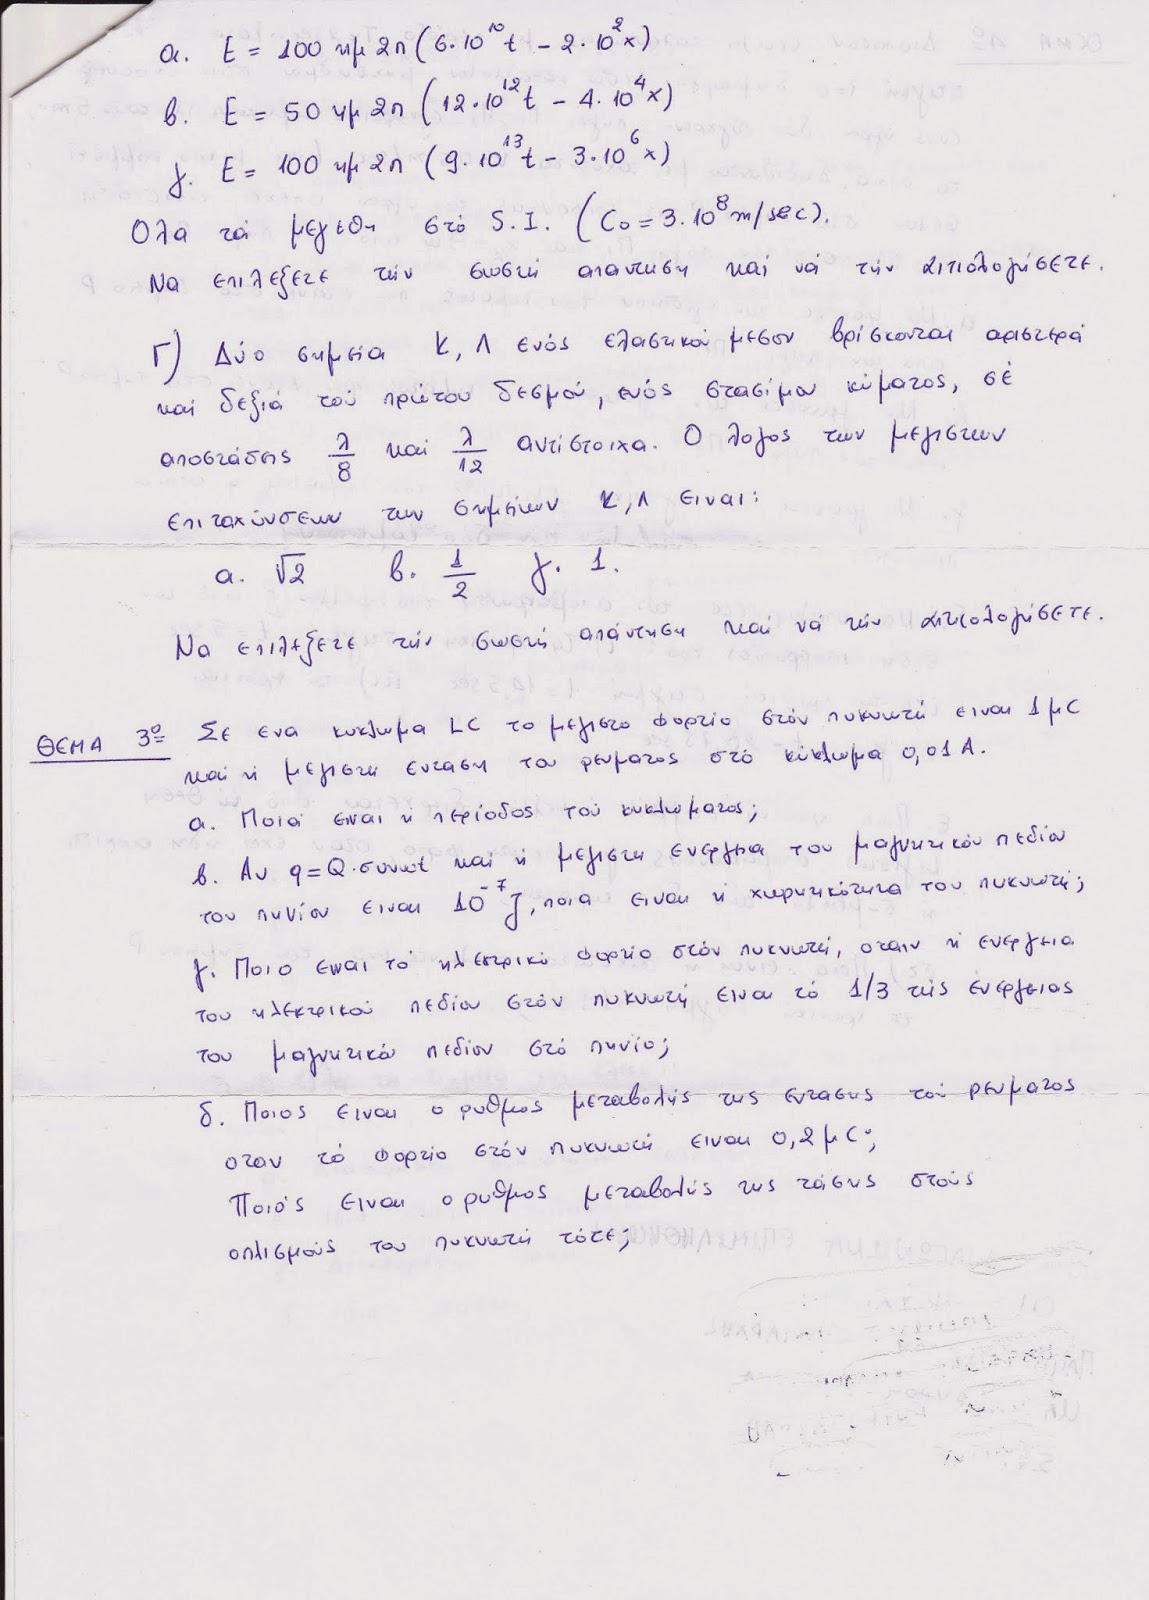 α. Ε = 100 ημ 2π (6·10¹⁰t - 2·10²x)
β. Ε = 50 ημ 2π (12·10¹²t - 4·10⁴x)
γ. Ε = 100 ημ 2π (9·10¹³t - 3·10⁶x)
Ολα τα μεγεθη στό S.I. (C₀ = 3·10⁸ m/sec).
Να επιλεξετε τήν σωστή απαντηση καί νά τήν αιτιολογήσετε.
Γ) Δύο σημεία Κ, Λ ενός ελαστικού μεσου βρίσκονται αριστερά
καί δεξιά τού πρώτου δεσμού, ενός στασίμου κύματος, σέ
αποστάσεις λ/8 καί λ/12 αντίστοιχα. Ο λογος των μεγιστων
επιταχύνσεων των σημείων Κ, Λ ειναι:
α. √2 β. 1/2 γ. 1.
Να επιλεξετε τήν σωστή απάντηση καί νά τήν αιτιολογήσετε.
ΘΕΜΑ 3º Σε ενα κυκλωμα LC το μεγιστο φορτίο στόν πυκνωτή ειναι 1μC
καί η μεγιστη ενταση του ρευματος στό κύκλωμα 0,01 Α.
α. Ποιά ειναι η περίοδος τού κυκλώματος;
β. Αν q = Q·συνωt καί η μεγιστη ενεργεια του μαγνητικού πεδίου
του πηνίου ειναι 10⁻⁷ J, ποια ειναι η χωρητικότητα του πυκνωτή;
γ. Ποιο ειναι τό ηλεκτρικό φορτίο στόν πυκνωτή, οταν η ενέργεια
του ηλεκτρικού πεδίου στόν πυκνωτή ειναι τό 1/3 τής ενέργειας
του μαγνητικού πεδίου στό πηνίο;
δ. Ποιος ειναι ο ρυθμος μεταβολής της εντασης τού ρευματος
οταν τό φορτίο στόν πυκνωτή ειναι 0,2 μC;
Ποιός ειναι ο ρυθμος μεταβολής της τάσης στούς
οπλισμούς του πυκνωτή τότε;